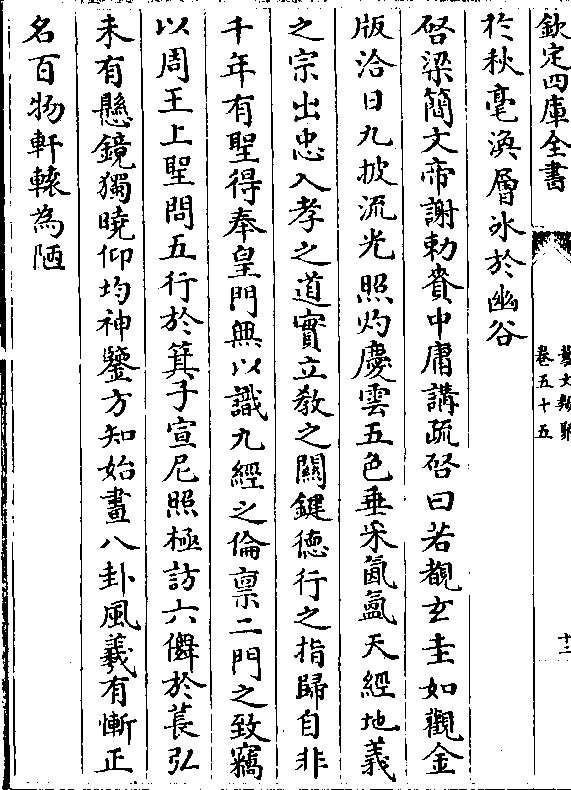 欽定四庫全書
藝文類聚
卷五十五
十二
於秋毫渙層冰於幽谷
啓梁簡文帝謝勅賚中庸講疏啓曰若覩玄圭如觀金
版洽日九披流光照灼慶雲五色垂采氤氳天經地義
之宗出忠入孝之道實立教之關鍵德行之指歸自非
千年有聖得奉皇門無以識九經之倫禀二門之致竊
以周王上聖問五行於箕子宣尼照極訪六儛於萇弘
未有懸鏡獨曉仰均神鑒方知始畫八卦風羲有慚正
名百物軒轅為陋